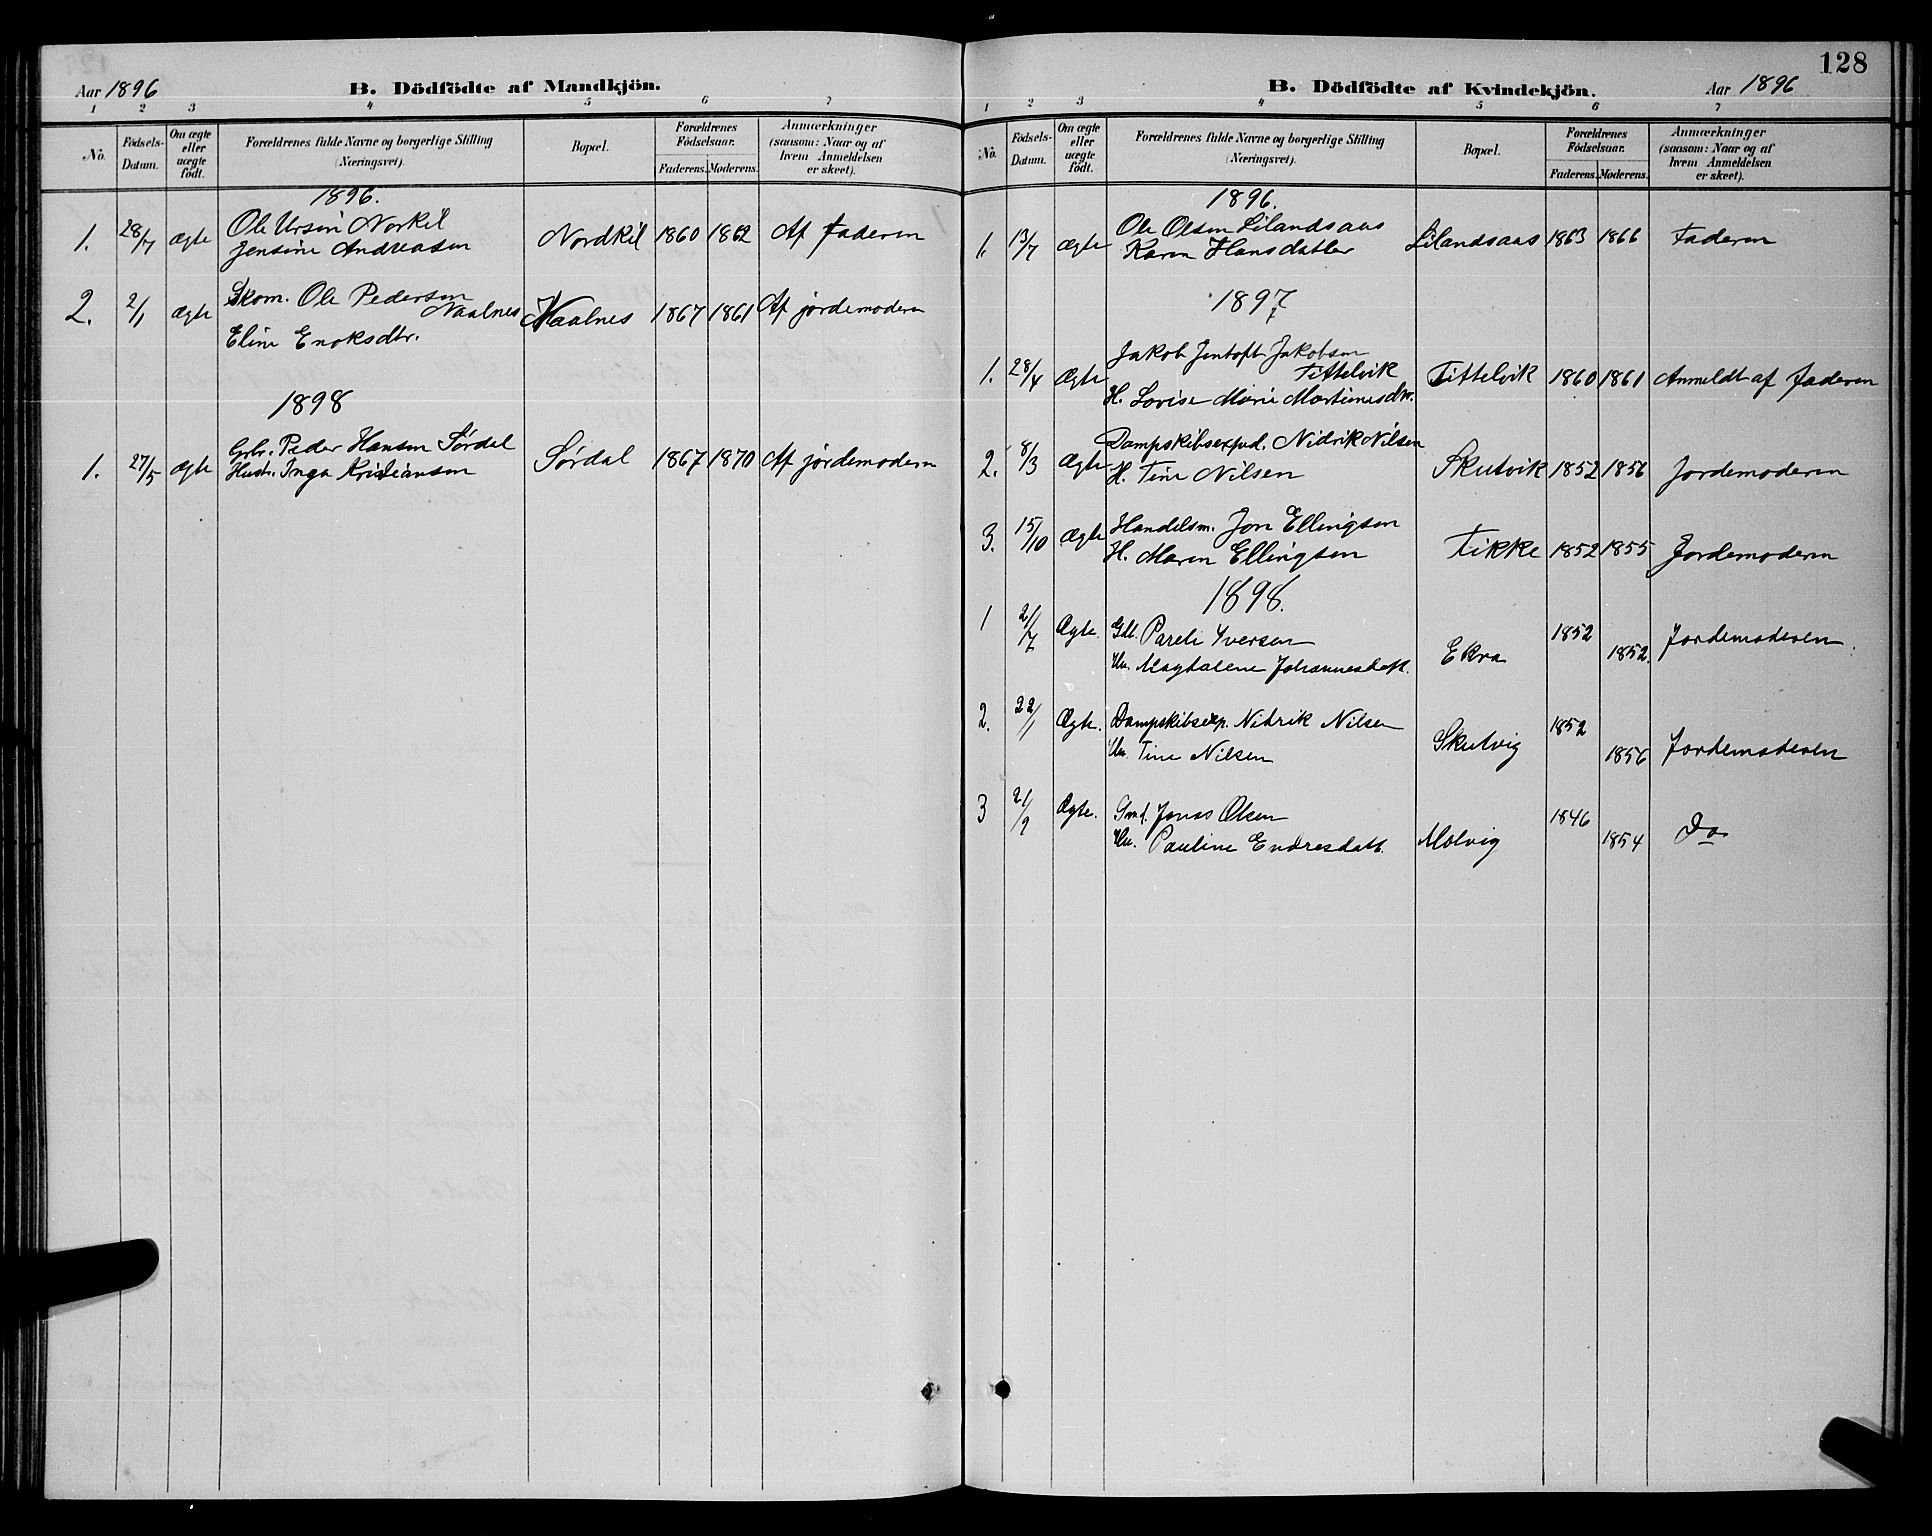 Aar 1896
B. Dödfödte af Mandkjön.
1 2 3 4 5 6 7
No. Födsels-Datum. Om ægte eller uægte födt. Forældrenes fulde Navne og borgerlige Stilling (Næringsvei). Bopæl. Forældrenes Födselsaar. Faderens. Moderens. Anmærkninger (saasom: Naar og af hvem Anmeldelsen er skeet).
1896.
1. 28/7 Ægte Ole Ursin Norkil Nordkil 1860 1862 Af Faderen
Jensine Andreasen
2. 2/1 Ægte Skom. Ole Pedersen Naalnes Naalnes 1867 1861 Af jordemoderen
Eline Enoksdtr.
1898
1. 27/5 Ægte Grbr. Peder Hansen Sørdal Sørdal 1867 1870 Af jordemodern
Hustr. Inga Kristiansen
128
B. Dödfödte af Kvindekjön.
Aar 1896
1 2 3 4 5 6 7
No. Födsels-Datum. Om ægte eller uægte födt. Forældrenes fulde Navne og borgerlige Stilling (Næringsvei). Bopæl. Forældrenes Födselsaar. Faderens. Moderens. Anmærkninger (saasom: Naar og af hvem Anmeldelsen er skeet).
1896.
1. 13/7 Ægte Ole Olsen Lilandsaas Lilandsaas 1863 1866 Faderen
Karen Hansdatter
1897
1. 28/4 Ægte Jakob Jentoft Jakobsen
Tittelvik Tittelvik 1860 1861 Anmeldt af Faderen
H. Lovise Marie Martinesdtr.
2. 8/3 Ægte Dampskibsexped. Nidrik Nilsen
H. Tine Nilsen Skutvik 1852 1856 Jordemoderen
3. 15/10 Ægte Handelsm. Jon Ellingsen
H. Maren Ellingsen Tikke 1852 1855 Jordemoderen
1898.
1 2/7 Ægte. Gbl. Pareli Iversen 1852 Jordemoderen
Hu. Magdalene Johannesdatt. Ekra 1852.
2. 22/1 Ægte. Dampskibsexp. Nidrik Nilsen 1852
Hu. Tine Nilsen Skutvig 1856 Jordemoderen
3 21/9 Ægte. Smd. Jonas Olsen 1846
Hu. Pauline Endresdatt. Molvig 1854 Do